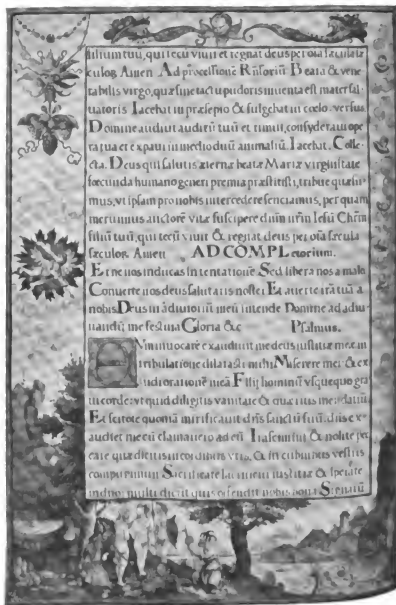 filium tuū, qui tecū viuit et regnat deus per oīa sæcula sæ
culor, Amen Ad processionē Rñsoriū Beata & vene
tabilis virgo, quæ sine tactu pudoris inuenta est mater sal
uatoris Iacebat in præsepio & fulgebat in cœlo versus
Domine audiui auditū tuū et timui, consyderaui ope
ra tua et expaui in medio duū animaliū Iacebat. Colle
cta. Deus qui salutis æternæ beatæ Mariæ virginitate
fœcunda humano generi premia præstitisti, tribue quæsu
mus, vt ipsam pro nobis intercedere sentiamus, per quam
meruimus auctorē vitæ suscipere dñm nr̃m Iesū Chr̃m
filiū tuū, qui tecū viuit & regnat deus per oīa sæcula
sæculor, Amen AD COMPLetorium.
Et ne nos inducas In tentationē Sed libera nos a malo
Conuerte nos deus salutaris noster Et auerte irā tuā a
nobis Deus in adiutoriū meū intende Domine ad adiu
uandū me festina Gloria &c Psalmus.
Cum inuocarē exaudiuit me deus iustitiæ meæ in
tribulatione dilatasti mihi Miserere mei & ex
audi orationē meā Filij hominū vsquequo gra
ui corde: vt quid diligitis vanitatē & quæritis mendatiū
Et scitote quoniā mirificauit dñs sanctū suū, dñs ex
audiet me cū clamauero ad eū Irascimini & nolite pec
care quæ dicitis in cordibus vr̃is & in cubilibus vestris
compungimini Sacrificate sacrificiū iustitiæ & sperate
in dño, multi dicūt quis ostendit nobis bona Signatū